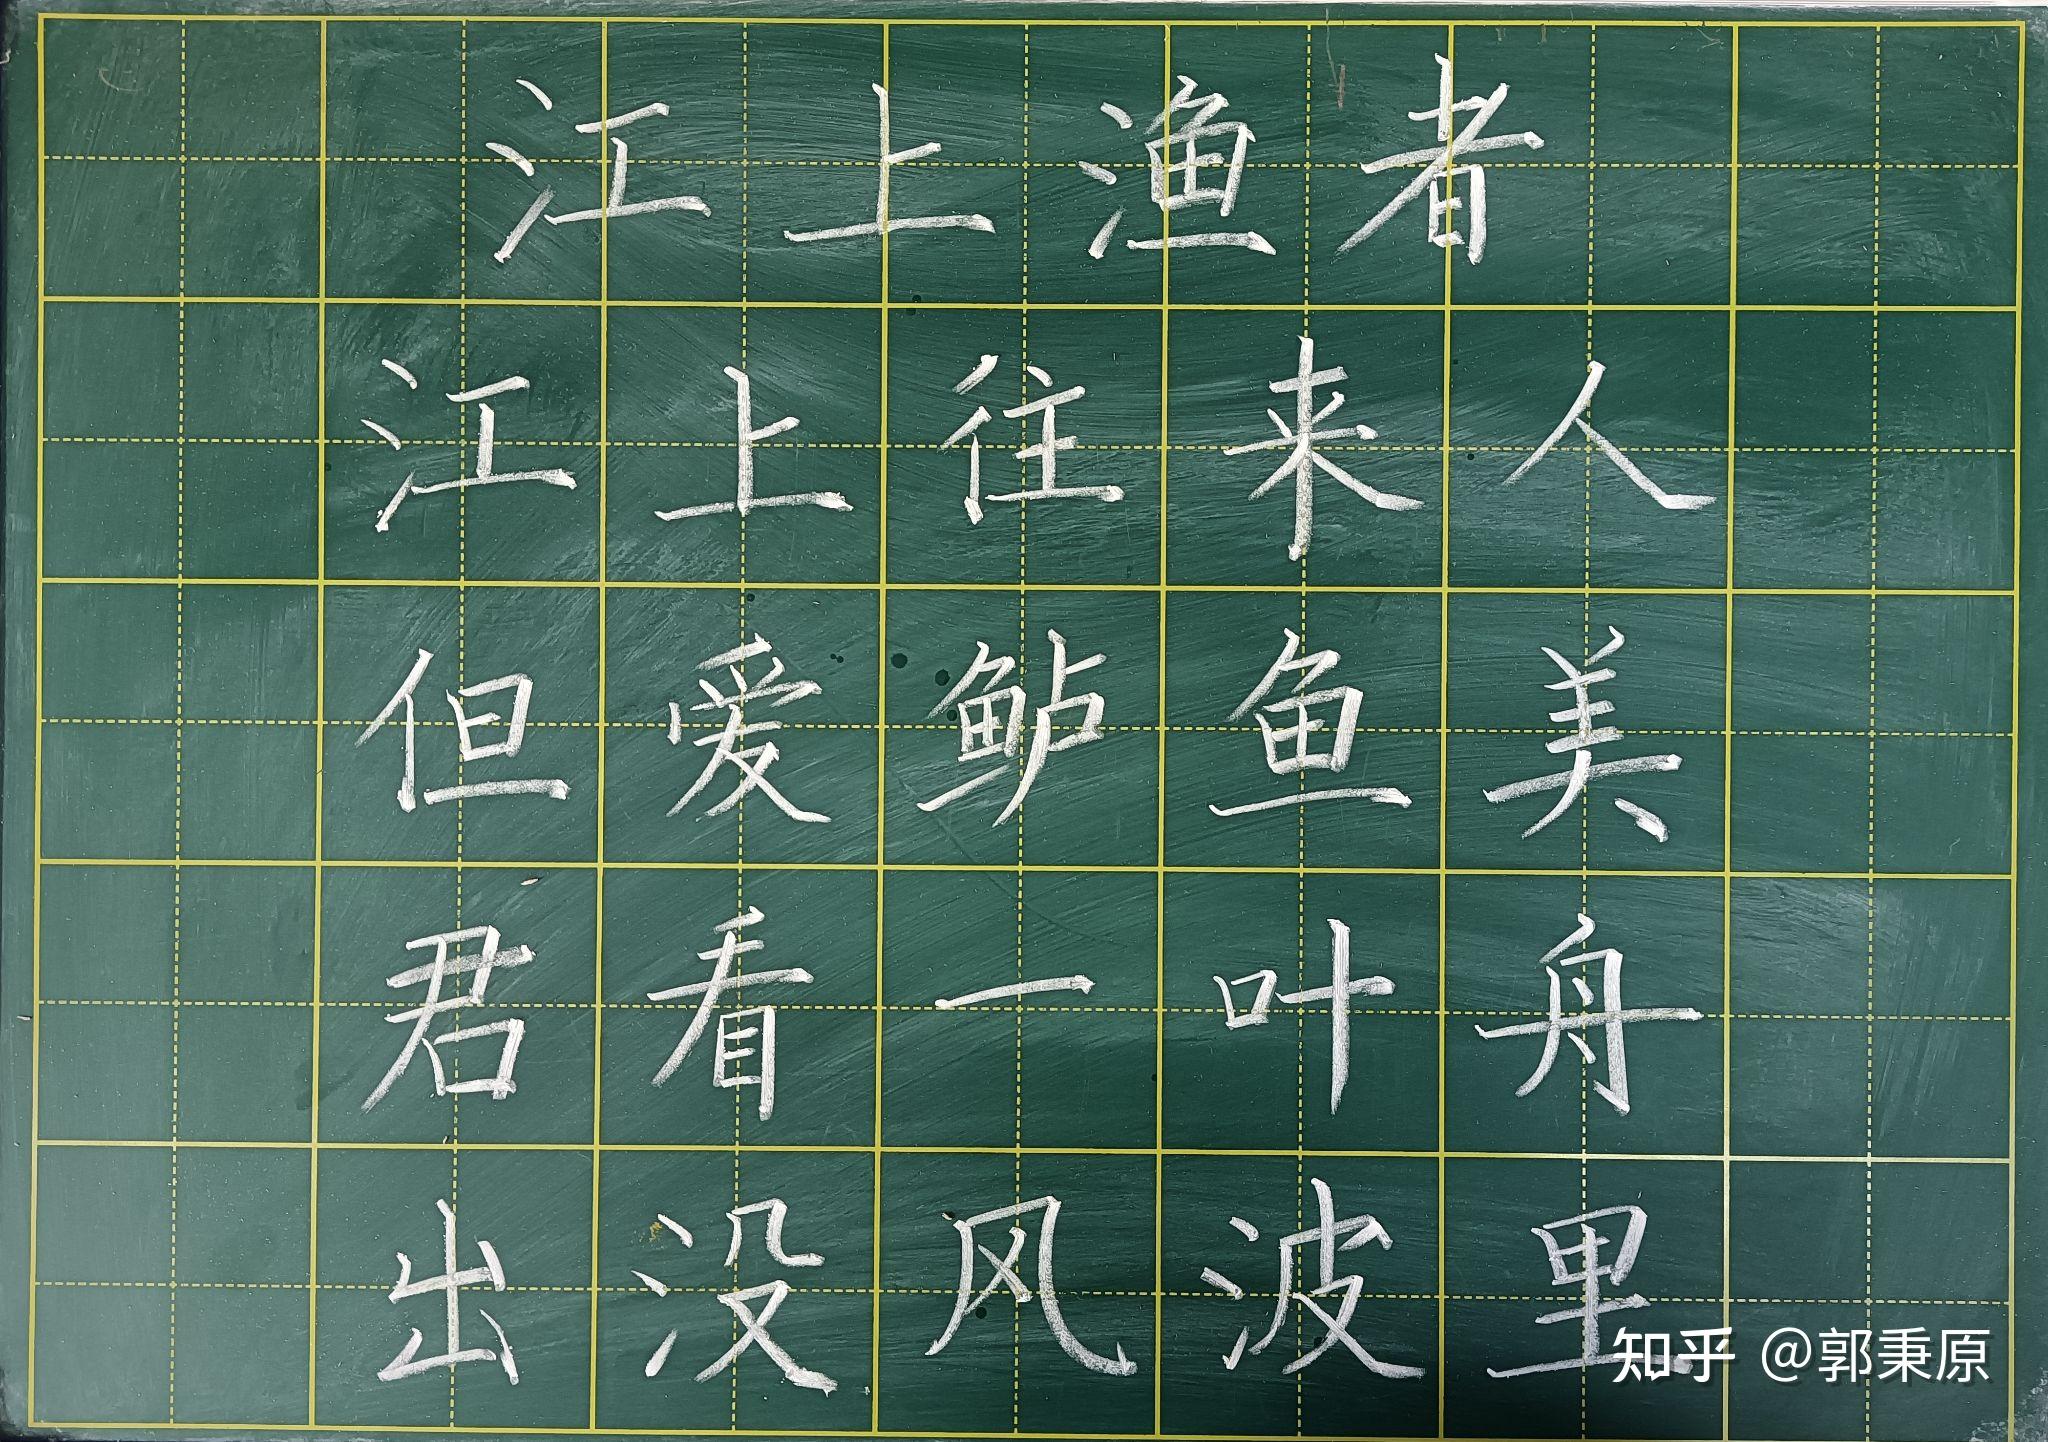 江上渔者
江上往来人
但爱鲈鱼美
君看一叶舟
出没风波里
知乎 @郭秉原